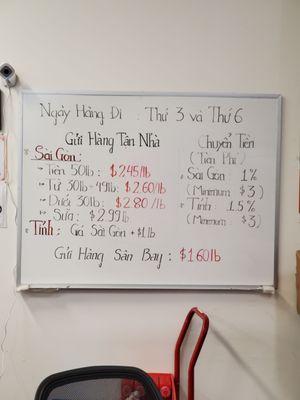 Ngày Hàng Đi : Thứ 3 và Thứ 6
Gửi Hàng Tân Nhà
Sài Gòn:
Trên 50lb: $2.45/lb
Từ 30lb - 49lb: $2.60/lb
Dưới 30lb: $2.80/lb
Sữa: $2.99lb
Tỉnh: Giá Sài Gòn + $1lb
Chuyển Tiền
(Tiền Phí)
Sài Gòn: 1%
(Minimum $3)
Tỉnh: 1.5%
(Minimum $3)
Gửi Hàng Sân Bay: $1.60lb